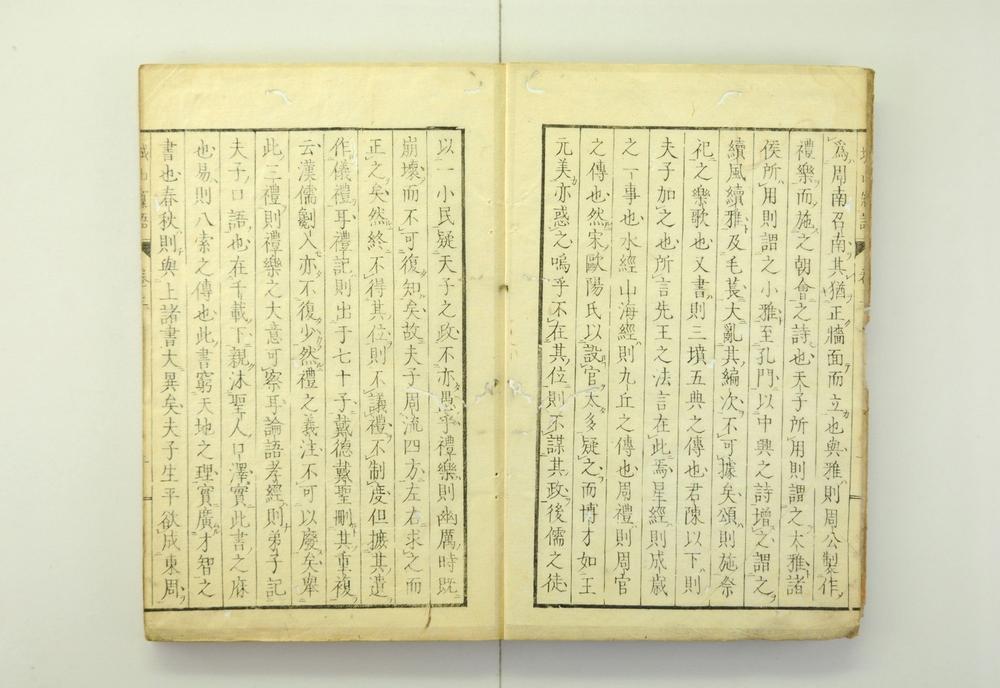 爲周南召南其猶正牆面而立也與雅則周公製作
禮樂而施之朝會之詩也天子所用則謂之大雅諸
侯所用則謂之小雅至孔門以中興之詩增之謂之
續風續雅及毛萇大亂其編次不可據矣頌則施祭
祀之樂歌也又書則三墳五典之傳也君陳以下則
夫子加之也所言先王之法言在此焉星經則成歲
之一事也水經山海經則九丘之傳也周禮則周官
之傳也然宋歐陽氏以設官太多疑之而博才如王
元美亦惑之嗚乎不在其位則不謀其政後儒之徒
以一小民疑天子之政不亦愚乎禮樂則幽厲時既
崩壞而不可復知矣故夫子周流四方左右求之而
正之矣然終不得其位則不議禮不制度但摭其遺
作儀禮耳禮記則出于七十子戴德戴聖刪其重複
云漢儒剿入亦不復少然禮之義注不可以廢矣舉
此三禮則禮樂之大意可察耳論語孝經則弟子記
夫子口語也在千載下親沐聖人口澤實此書之庥
也易則八索之傳也此書窮天地之理實廣才智之
書也春秋則與上諸書大異矣夫子生平欲成東周